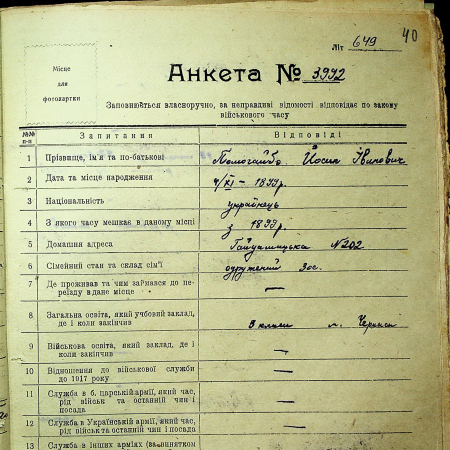 Літ 649
40
Місце
для
фотокартки
Анкета № 3992
Заповнюється власноручно, за неправдиві відомості відповідає по закону
військового часу
№№ п-п Запитання Відповіді
1 Прізвище, ім'я та по-батькові Помогайбо Йосип Іванович
2 Дата та місце народження 4/XI – 1899р.
3 Національність українець
4 З якого часу мешкає в даному місці з 1899р.
5 Домашня адреса № 202
6 Сімейний стан та склад сім'ї одружений 3 ос.
7 Де проживав та чим займався до пе-
реїзду в дане місце —
8 Загальна освіта, який учбовий заклад,
де і коли закінчив 3 класи м. Черкаси
9 Військова освіта, який заклад, де і
коли закінчив —
10 Відношення до військової служби
до 1917 року —
11 Служба в б. царській армії, який час,
рід військ та останній чин і
посада —
12 Служба в Українській армії, який час,
рід військ та останній чин і посада —
13 Служба в інших арміях (за винятком